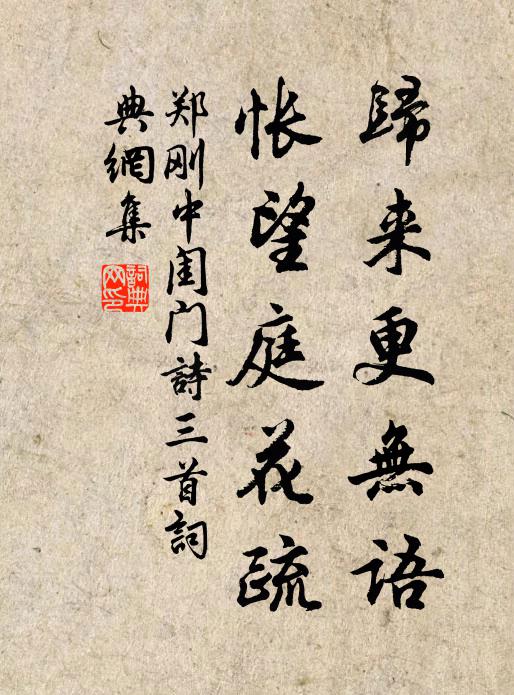 歸来更無語
悵望庭花疏
郑刚中闺门詩三首詞
典網集
詞典網印